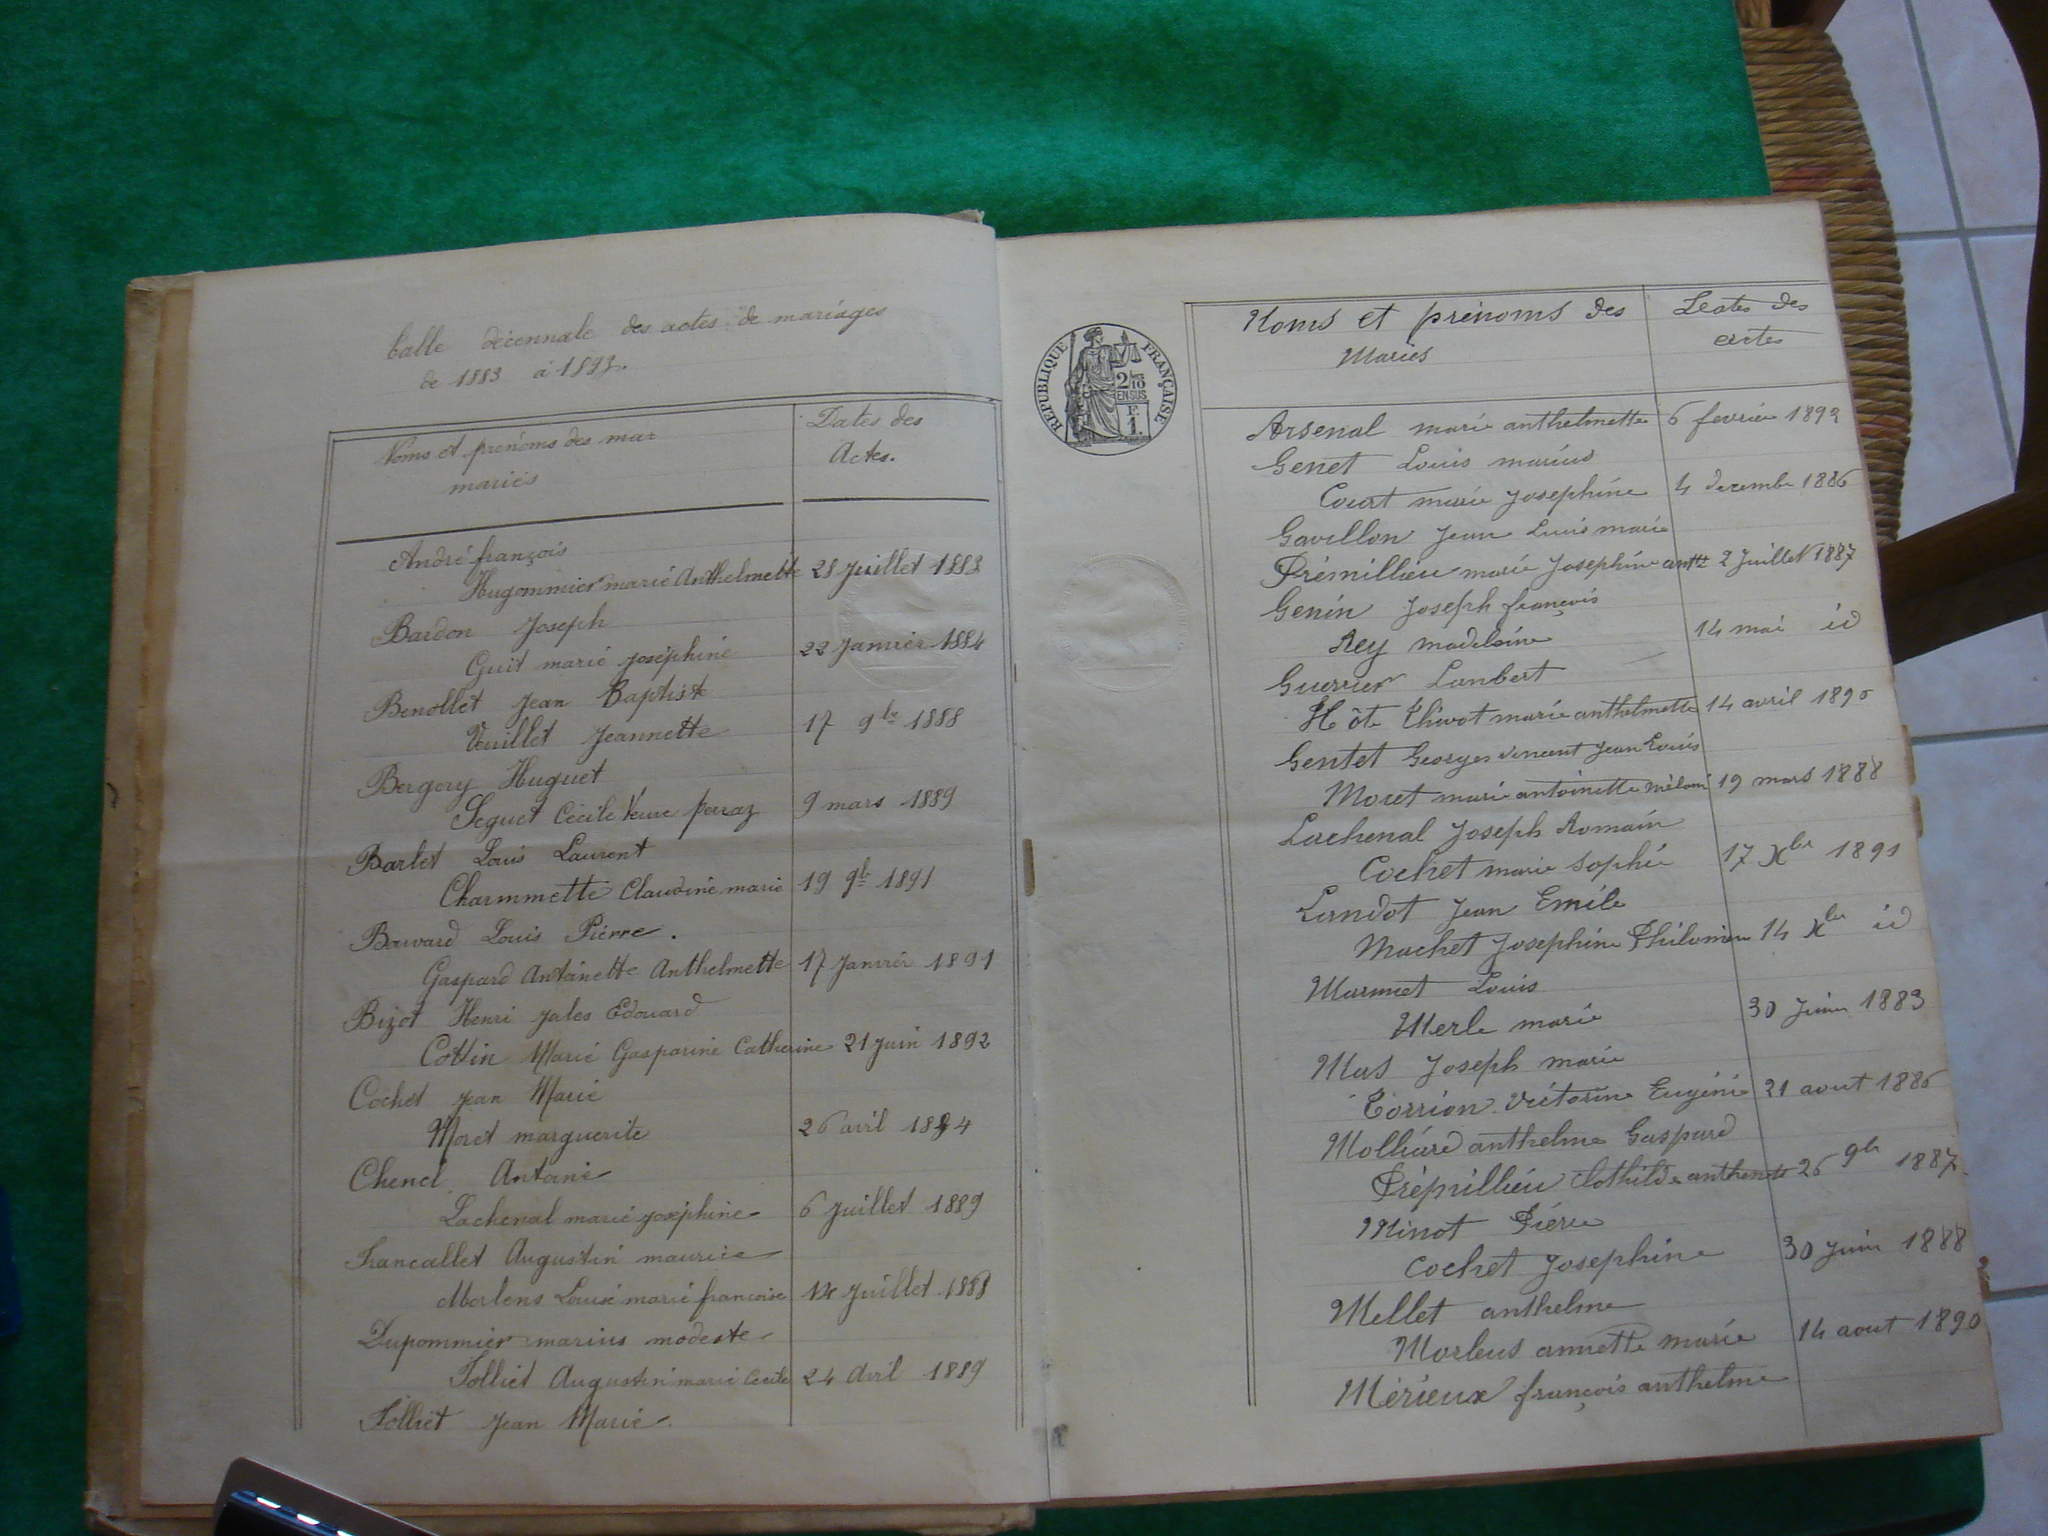 Table décennale des actes de mariages
de 1883 à 1892.
Noms et prénoms des ma=
mariés
Dates des
Actes.
André françois
Hugommier marie Anthelmette 28 juillet 1883
Bardon Joseph
Guit marie joséphine 22 Janvier 1884
Benollet Jean Baptiste
Veuillet Jeannette 17 9bre 1888
Bergery Huguet
Seguet Cécile Veuve perraz 9 mars 1889
Barlet Louis Laurent
Charmmette Claudine marie 19 9b 1891
Bouvard Louis Pierre.
Gaspard Antoinette Anthelmette 17 Janvier 1891
Bizot Henri Jules Edouard
Cottin Marie Gasparine Catherine 21 juin 1892
Cochet Jean Marie
Moret marguerite 26 avril 1884
Chenel Antoine
Lachenal marie josephine 6 Juillet 1889
Francallet Augustin maurice
Morlens Louise marie françoise Juillet 1888
Dupommier marius modeste
Folliet Augustin marie Cécile 24 Avril 1889
Folliet Jean Marie.
RÉPUBLIQUE FRANÇAISE
2/10
EN SUS
F.
1.
Noms et prénoms des
Mariés
Dates des
actes
Arsenal marie anthelmette 6 fevrier 1892
Genet Louis marius
Court marie Josephine 4 decembre 1886
Gavillon Jean Louis marie
Prémillieu marie Josephine antte 2 Juillet 1887
Genin Joseph françois
Rey madeleine 14 mai id
Guerrier Lambert
Hôte Thivot marie anthelmette 14 avril 1890
Gentet Georges vincent Jean Louis
Moret marie antoinette mélani 19 mars 1888
Lachenal Joseph Romain
Cochet marie Sophie 17 Xbre 1891
Landot Jean Emile
Machet Josephine Philomène 14 Xbre id
Marmet Louis
Merle marie 30 Juin 1883
Mas Joseph marie
Torrion victorine Eugénie 21 aout 1886
Molliard anthelme Gaspard
Prémillieu Clothilde 26 9b 1887
Minot Pierre
Cochet Josephine 30 Juin 1888
Mellet anthelme
Morlens annette marie 14 aout 1890
Mérieux françois anthelme